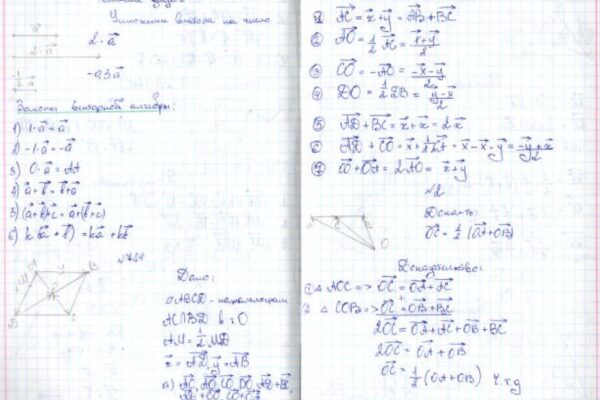 Умножение вектора на число
a
2·a
2·a
-0,5a
Законы векторной алгебры:
1) 1·a=a
2) -1·a=-a
3) 0·a=AA
4) a+b=b+a
5) (a+b)+c=a+(b+c)
6) k(a+b)=ka+kb
Дано:
ABCD - параллелограм
AC∩BD в т.О
AM=1/2 MD
x=AD, y=AB
а) AC, AO, CO, DO, AD+BC,
AD+CO, CO+OA
① AC=x+y=AB+BC
② AO=1/2 AC=x+y/2
③ CO=-AO=-x-y/2
④ DO=1/2 DB=y-x/2
⑤ AD+BC=x+x=2x
⑥
⑦ CO+OA=2·AO=x+y
№2
Доказать:
OC=1/2(OA+OB)
Доказательство:
△AOC=>OC=OA+AC
△COB=>OC=OB+BC
2OC=OA+AC+OB+BC
2OC=OA+OB
OC=1/2(OA+OB) ч.т.д